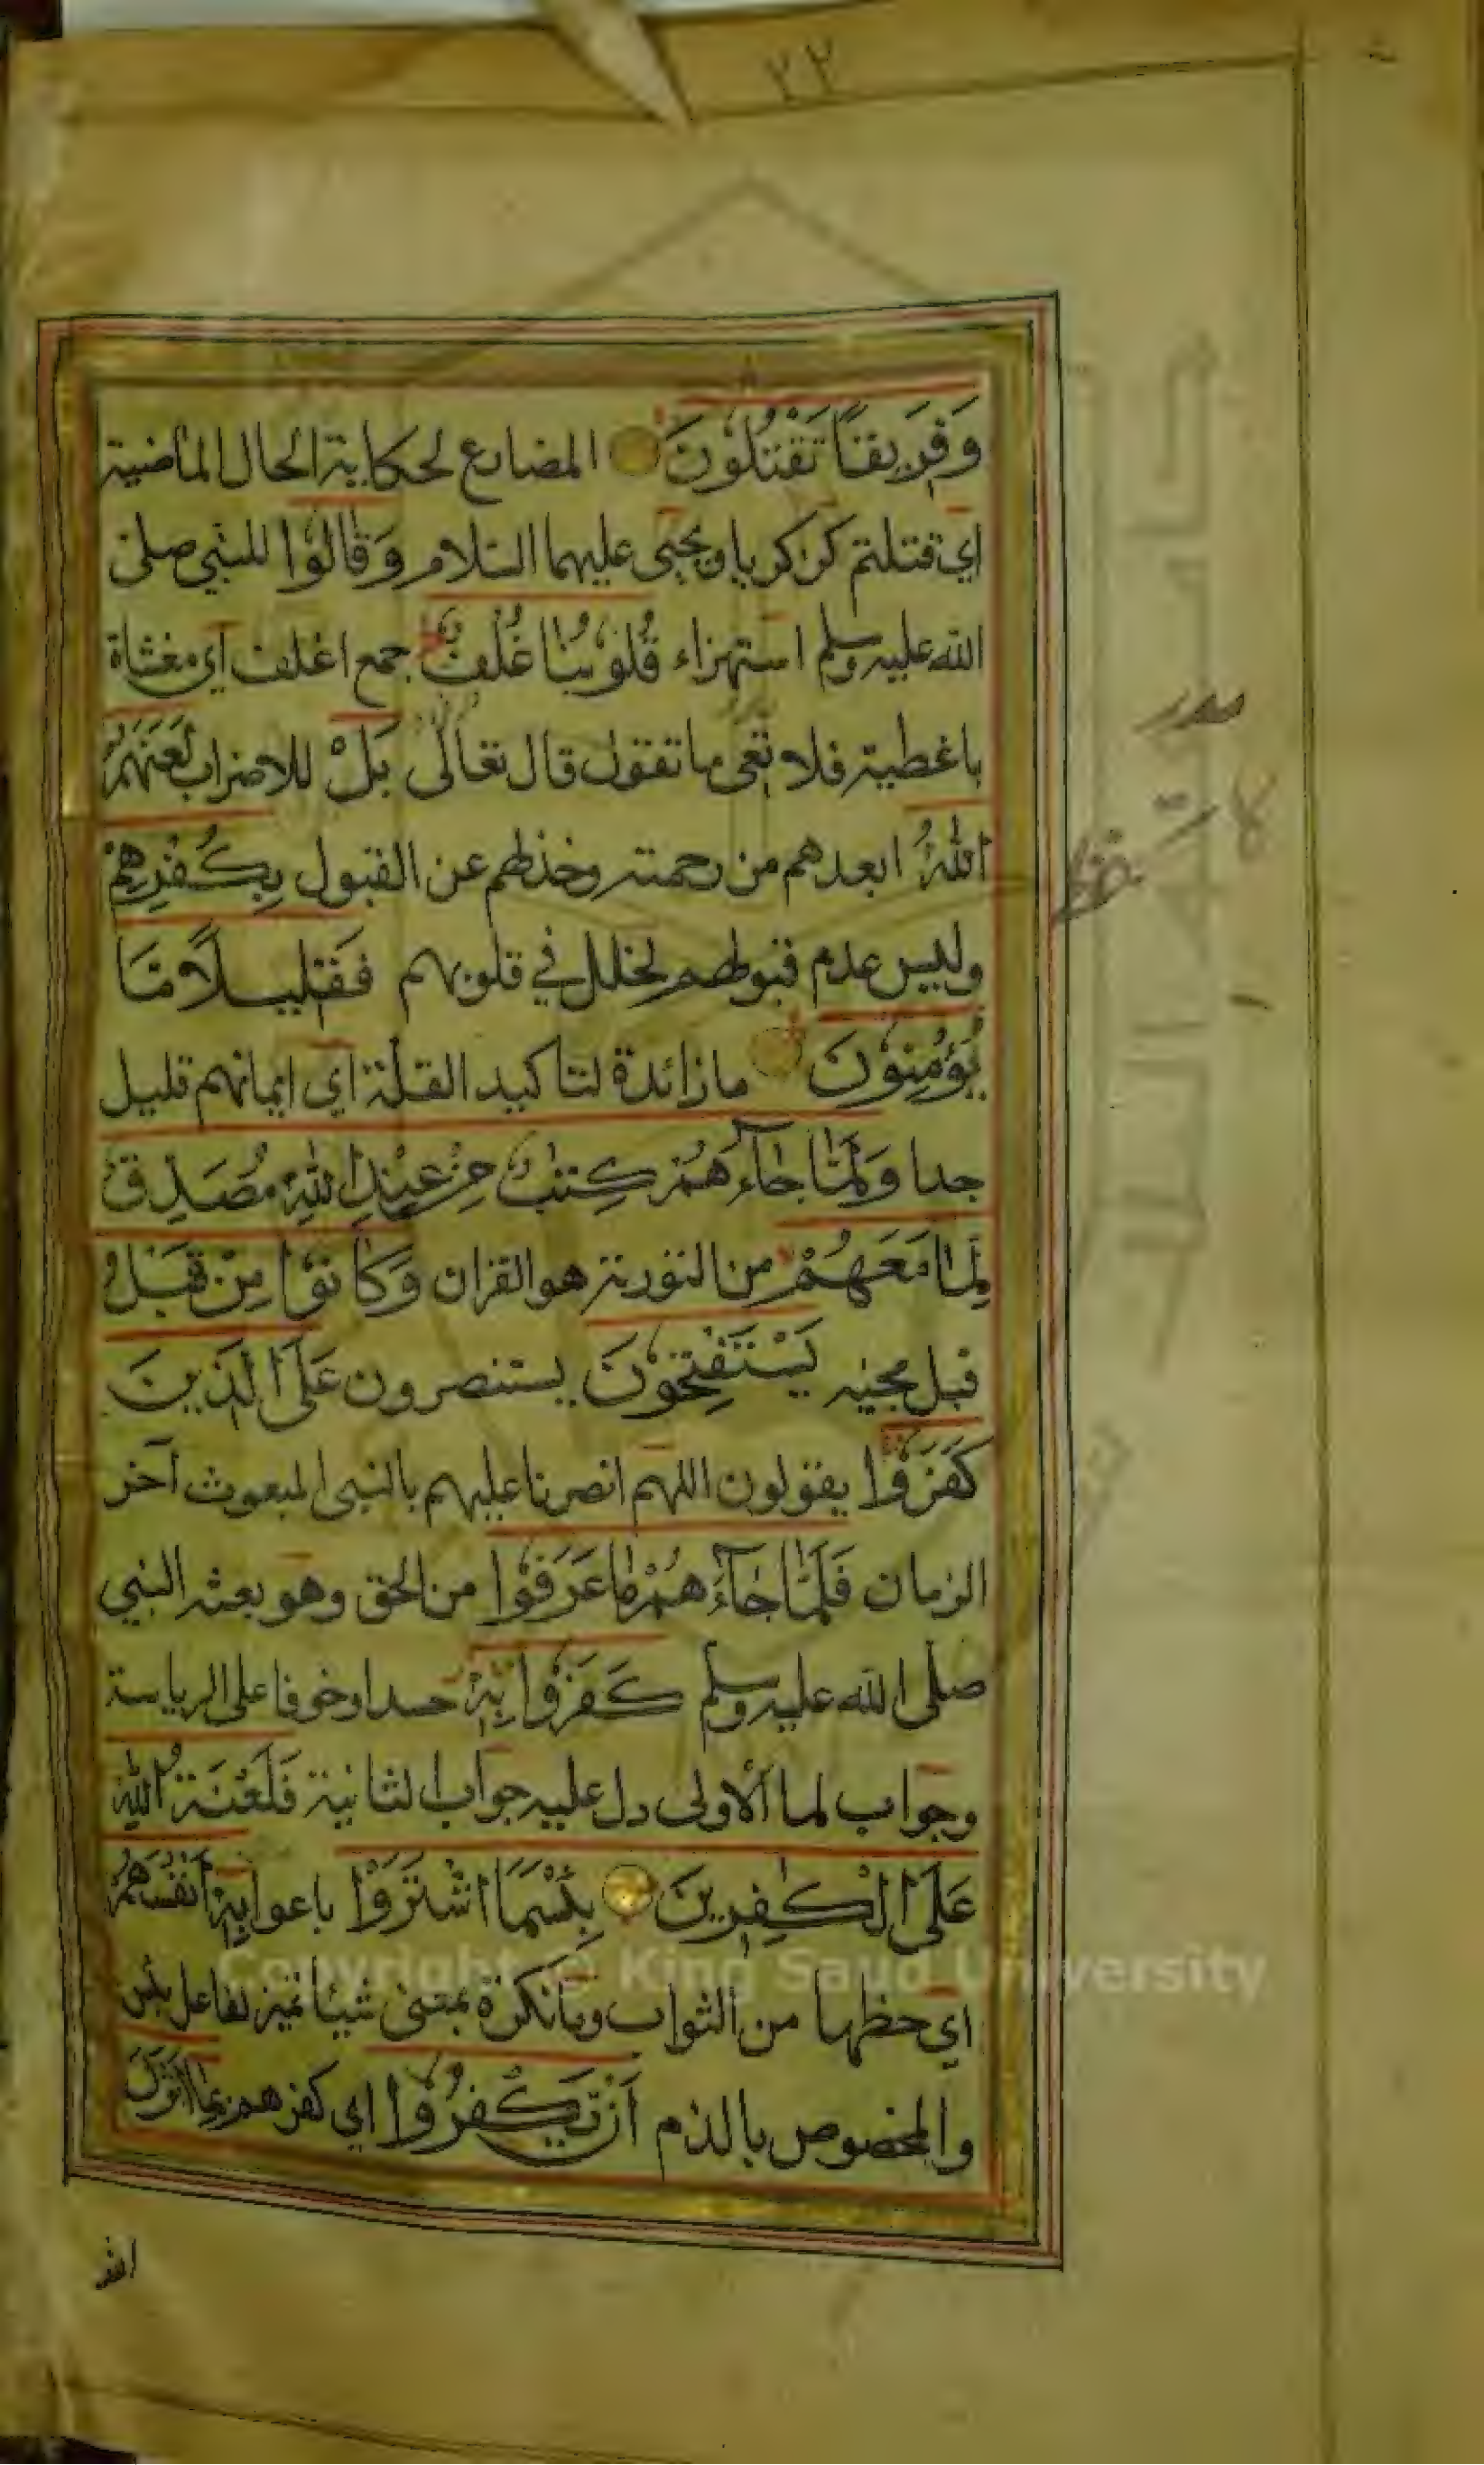 ٢٢
وَفَرِيقًا تَقْتُلُونَ المضارع لحكاية الحال الماضية
اي قتلتم كزكريا ويحيى عليهما السلام وَقَالُوا للنبي صلى
الله عليه وسلم استهزاء قُلُوبُنَا غُلْفٌ جمع اغلف اي مغشاة
باغطية فلا تعى ما تقول قال تعالى بَلْ للاضراب لَعَنَهُمُ
اللَّهُ ابعدهم من رحمته وخذلهم عن القبول بِكُفْرِهِمْ
وليس عدم قبولهم لخلل في قلوبهم فَقَلِيلًا مَّا
يُؤْمِنُونَ ما زائدة لتاكيد القلة اي ايمانهم قليل
جدا وَلَمَّا جَاءَهُمْ كِتٰبٌ مِنْ عِنْدِ اللّٰهِ مُصَدِّقٌ
لِمَا مَعَهُمْ من التورية هو القران وَكَانُوا مِنْ قَبْلُ
قبل مجيئه يَسْتَفْتِحُونَ يستنصرون عَلَى الَّذِينَ
كَفَرُوا يقولون اللهم انصرنا عليهم بالنبى المبعوث آخر
الزمان فَلَمَّا جَاءَهُمْ مَا عَرَفُوا من الحق وهو بعثه النبي
صلى الله عليه وسلم كَفَرُوا بِهِ حسدا وخوفا على الرياسة
وجواب لما الاولى دل عليه جواب الثانية فَلَعْنَةُ اللّٰهِ
عَلَى الْكٰفِرِينَ بِئْسَمَا اشْتَرَوْا باعوا بِهِ أَنْفُسَهُمْ
اي حظها من الثواب وما نكرة بمعنى شيئا تمييز لفاعل بئس
والمخصوص بالذم أَنْ يَكْفُرُوا اي كفرهم بِمَا أَنْزَلَ
الله
Copyright © King Saud University